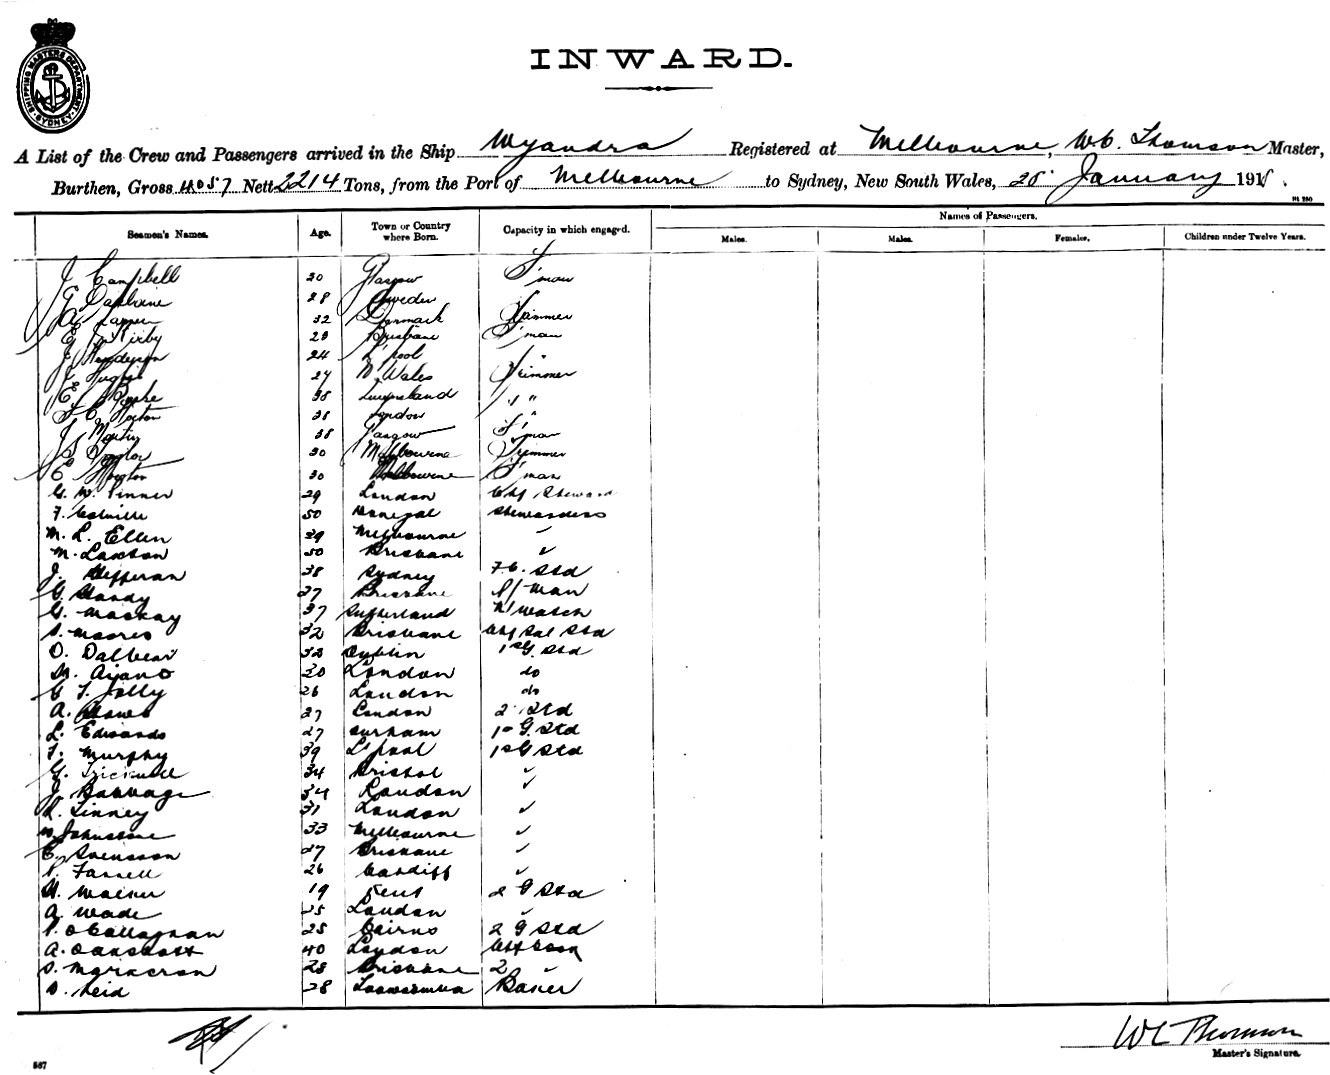 SHIPPING MASTERS DEPARTMENT SYDNEY
INWARD.
A List of the Crew and Passengers arrived in the Ship Wyandra Registered at Melbourne, W.C. Thomson Master,
Burthen, Gross 4057 Nett 2214 Tons, from the Port of Melbourne to Sydney, New South Wales, 28 January 191
Seamen's Names. Age. Town or Country where Born. Capacity in which engaged. Names of Passengers.
Males. Males. Females. Children under Twelve Years.
J Campbell 30 Glasgow F'man
28 Sweden
32 Denmark Trimmer
E Kirby 28 Brisbane F'man
J Henderson 24 L'pool "
J Hughes 27 N Wales Trimmer
E 38 Queensland " "
F C Horton 28 London "
J Martin 38 Glasgow F'man
S 30 Melbourne Trimmer
C Horton 30 Melbourne F'man
G. W. Pinner 29 London Chf Steward
F. Colville 50 Donegal Stewardess
M. L. Ellen 29 Melbourne
M. Lawson 50 Brisbane
J. Hefferan 38 Sydney F.C. Std
G. Handy 27 Brisbane P/man
G. Mackay 37 Sutherland N/Watch
S. Moores 32 Brisbane Chf Sal Std
O. 32 Dublin 1st G. Std
20 London do
G T. Jolly 26 London do
A. 27 London 2 Std
L. Edwards 27 Durham 1st G. Std
F. Murphy 39 L'pool 1st G Std
G. 34 Bristol
J. Babbage 34 London
Tinney 31 London
Johnstone 33 Melbourne
E. Svensson 27 Brisbane
P. Farrell 26 Cardiff
H. Walker 19 Kent 2 G Std
A. Wade 25 London
P. O'Callaghan 25 Cairns 2 G Std
A. 40 London Chf Cook
S. 28 Brisbane 2
D. Reid 28 Toowoomba Baker
WC Thomson
Master's Signature.
567